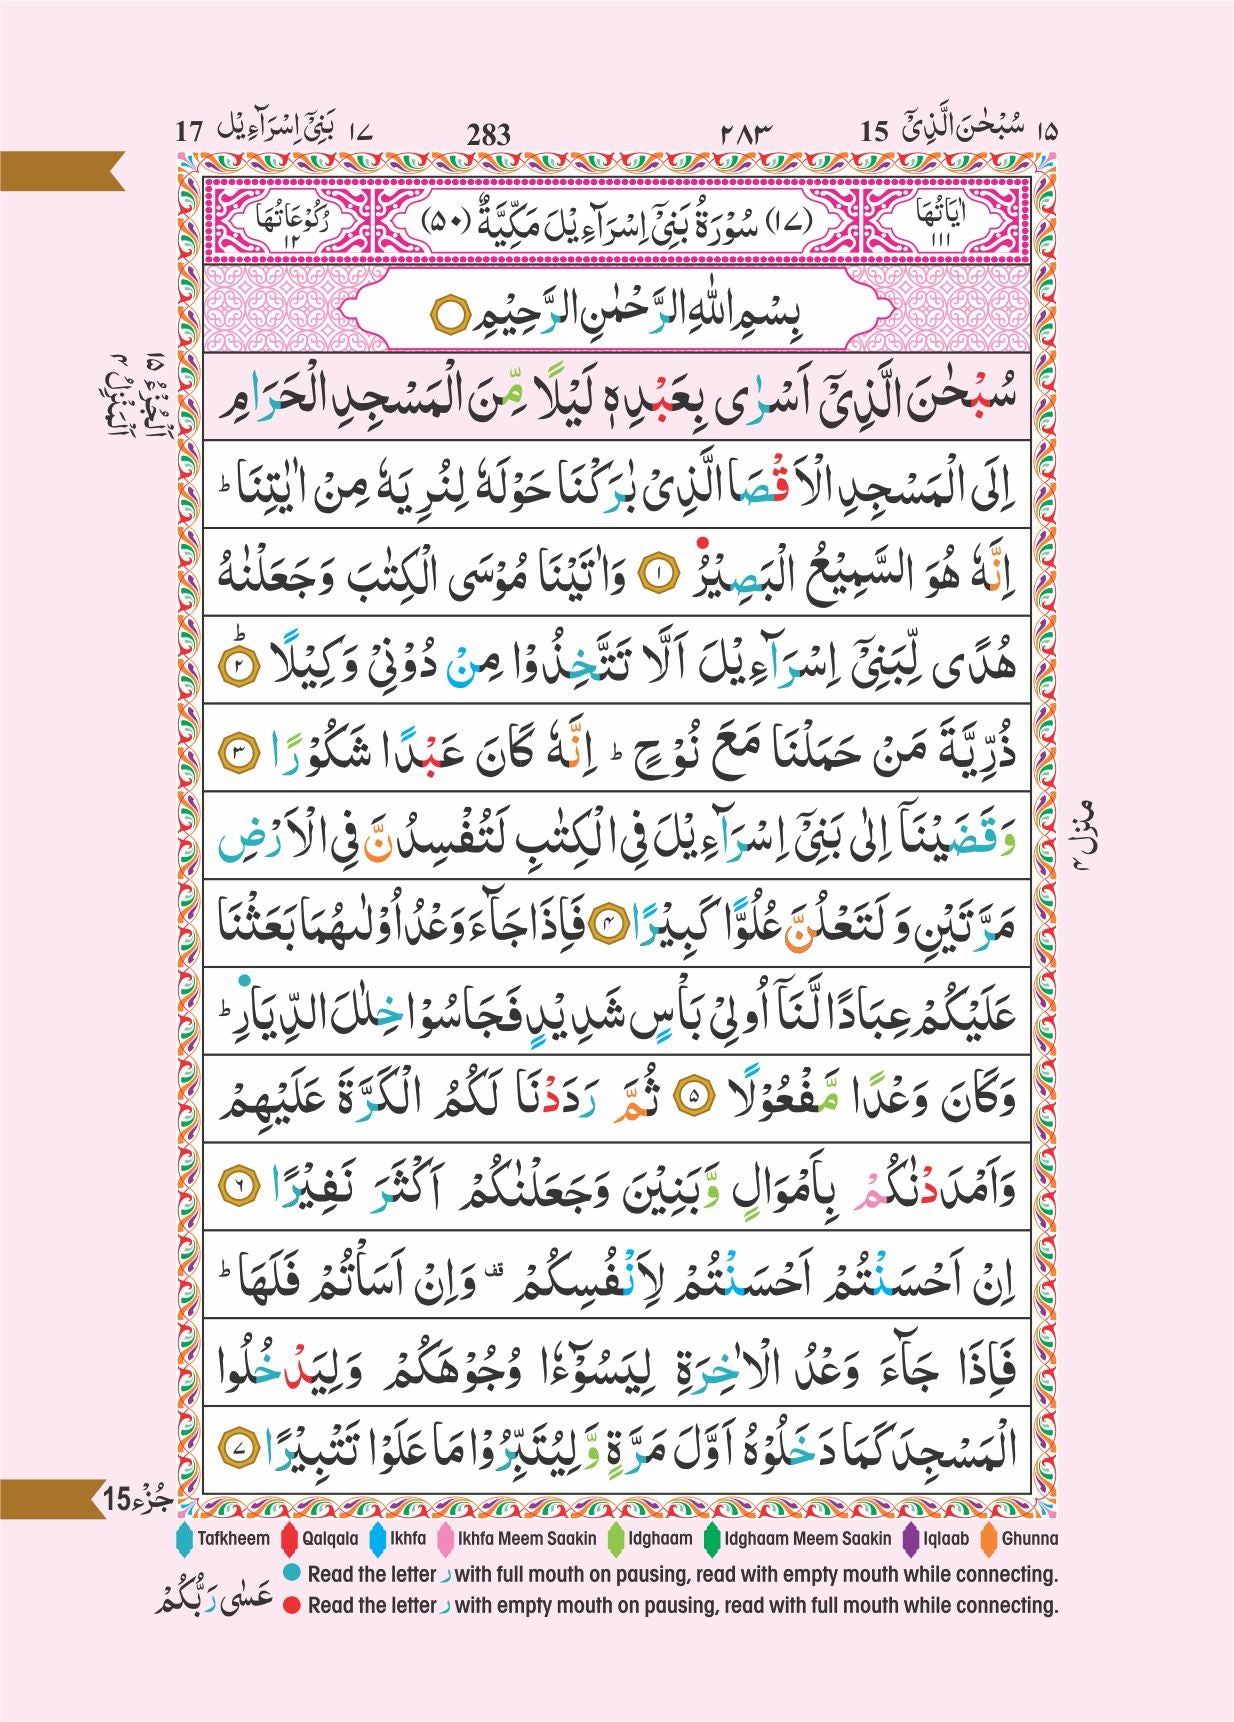 ۱۵ سُبْحٰنَ الَّذِیْۤ 15 ۲۸۳ 283 ۱۷ بَنِیْۤ اِسْرَآءِیْل 17
اٰیَاتُهَا ۱۱۱ (۱۷) سُوْرَةُ بَنِیْۤ اِسْرَآءِیْلَ مَكِّیَّةٌ (۵۰) رُكُوْعَاتُهَا ۱۲
بِسْمِ اللّٰهِ الرَّحْمٰنِ الرَّحِیْمِ
اَلْجُزْءُ ۱۵
اَلْمَنْزِلُ ۴
سُبْحٰنَ الَّذِیْۤ اَسْرٰی بِعَبْدِهٖ لَیْلًا مِّنَ الْمَسْجِدِ الْحَرَامِ
اِلَی الْمَسْجِدِ الْاَقْصَا الَّذِیْ بٰرَكْنَا حَوْلَهٗ لِنُرِیَهٗ مِنْ اٰیٰتِنَا ؕ
اِنَّهٗ هُوَ السَّمِیْعُ الْبَصِیْرُ ۱ وَاٰتَیْنَا مُوْسَی الْكِتٰبَ وَجَعَلْنٰهُ
هُدًی لِّبَنِیْۤ اِسْرَآءِیْلَ اَلَّا تَتَّخِذُوْا مِنْ دُوْنِیْ وَكِیْلًا ؕ ۲
ذُرِّیَّةَ مَنْ حَمَلْنَا مَعَ نُوْحٍ ؕ اِنَّهٗ كَانَ عَبْدًا شَكُوْرًا ۳
وَقَضَیْنَاۤ اِلٰی بَنِیْۤ اِسْرَآءِیْلَ فِی الْكِتٰبِ لَتُفْسِدُنَّ فِی الْاَرْضِ
مَرَّتَیْنِ وَلَتَعْلُنَّ عُلُوًّا كَبِیْرًا ۴ فَاِذَا جَآءَ وَعْدُ اُوْلٰىهُمَا بَعَثْنَا
عَلَیْكُمْ عِبَادًا لَّنَاۤ اُولِیْ بَاْسٍ شَدِیْدٍ فَجَاسُوْا خِلٰلَ الدِّیَارِ ؕ
وَكَانَ وَعْدًا مَّفْعُوْلًا ۵ ثُمَّ رَدَدْنَا لَكُمُ الْكَرَّةَ عَلَیْهِمْ
وَاَمْدَدْنٰكُمْ بِاَمْوَالٍ وَّبَنِیْنَ وَجَعَلْنٰكُمْ اَكْثَرَ نَفِیْرًا ۶
اِنْ اَحْسَنْتُمْ اَحْسَنْتُمْ لِاَنْفُسِكُمْ قف وَاِنْ اَسَاْتُمْ فَلَهَا ؕ
فَاِذَا جَآءَ وَعْدُ الْاٰخِرَةِ لِیَسُوْٓءٗا وُجُوْهَكُمْ وَلِیَدْخُلُوا
الْمَسْجِدَ كَمَا دَخَلُوْهُ اَوَّلَ مَرَّةٍ وَّلِیُتَبِّرُوْا مَا عَلَوْا تَتْبِیْرًا ۷
منزل ۴
جُزْء 15
Tafkheem Qalqala Ikhfa Ikhfa Meem Saakin Idghaam Idghaam Meem Saakin Iqlaab Ghunna
Read the letter ر with full mouth on pausing, read with empty mouth while connecting.
Read the letter ر with empty mouth on pausing, read with full mouth while connecting.
عَسٰی رَبُّكُمْ